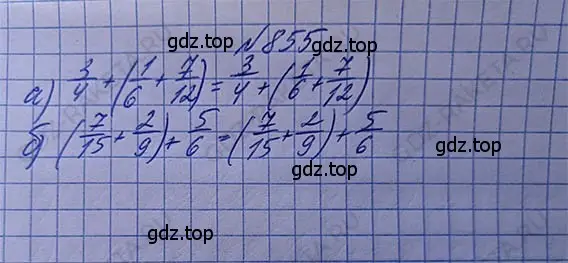 №855
gdz.top
а) 3/4 + (1/6 + 7/12) = 3/4 + (1/6 + 7/12)
б) (7/15 + 2/9) + 5/6 = (7/15 + 2/9) + 5/6
gdz.top
gdz.top
gdz.top
gdz.top